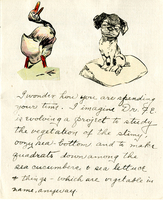 I wonder how you are spending
your time. I imagine Dr. F.E.
is evolving a project to study
the vegetation of the slimy
oozy sea-bottom and to make
quadrats down among the
sea cucumbers & sea lettuce
& things - which are vegetable in
name anyway.